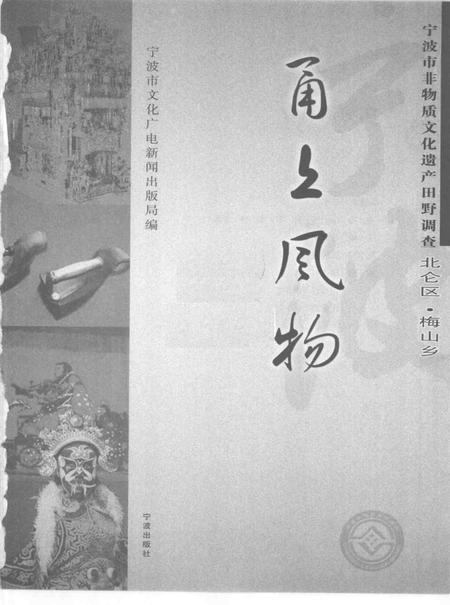 宁波市非物质文化遗产田野调查 北仑区·梅山乡
甬上风物
宁波市文化广电新闻出版局编
宁波出版社